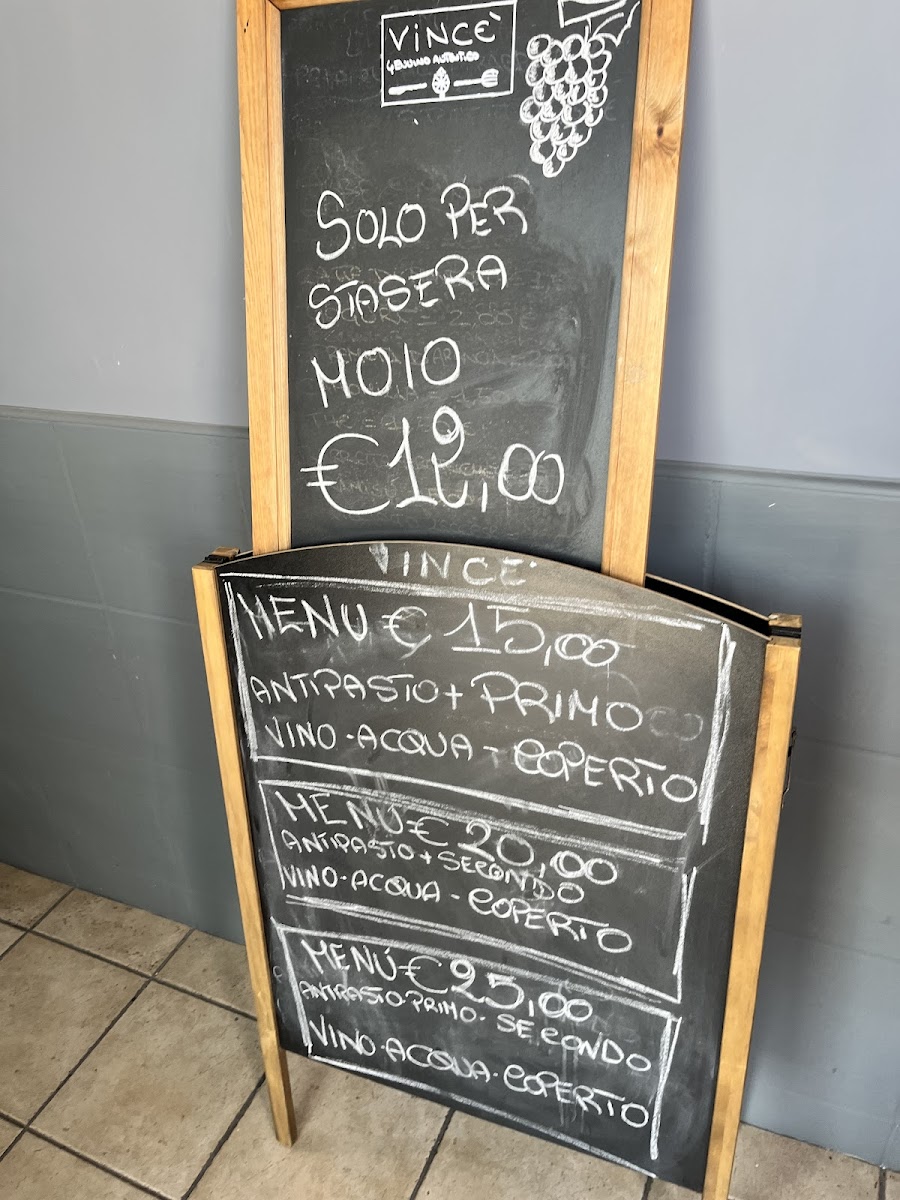 VINCE'
GENUINO AUTENTICO
SOLO PER
STASERA
MOIO
€ 12,00
VINCE'
MENU € 15,00
ANTIPASTO + PRIMO
VINO - ACQUA - COPERTO
MENÙ € 20,00
ANTIPASTO + SECONDO
VINO - ACQUA - COPERTO
MENÙ € 25,00
ANTIPASTO - PRIMO - SECONDO
VINO - ACQUA - COPERTO